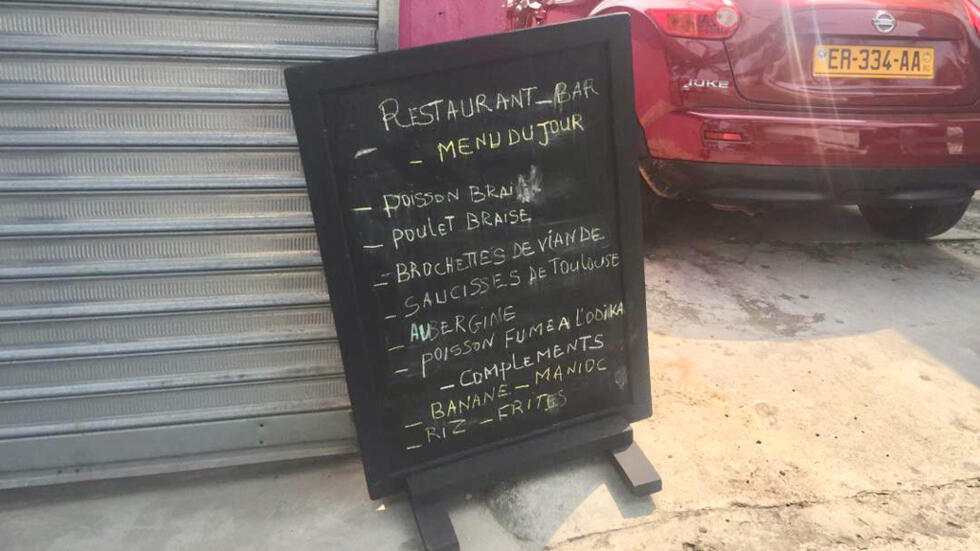 RESTAURANT-BAR
- MENU DU JOUR
- POISSON BRAI
- POULET BRAISE
- BROCHETTES DE VIANDE
- SAUCISSES DE TOULOUSE
- AUBERGINE
- POISSON FUME A L'ODIKA
- COMPLEMENTS
- BANANE - MANIOC
- RIZ - FRITES
JUKE
ER-334-AA